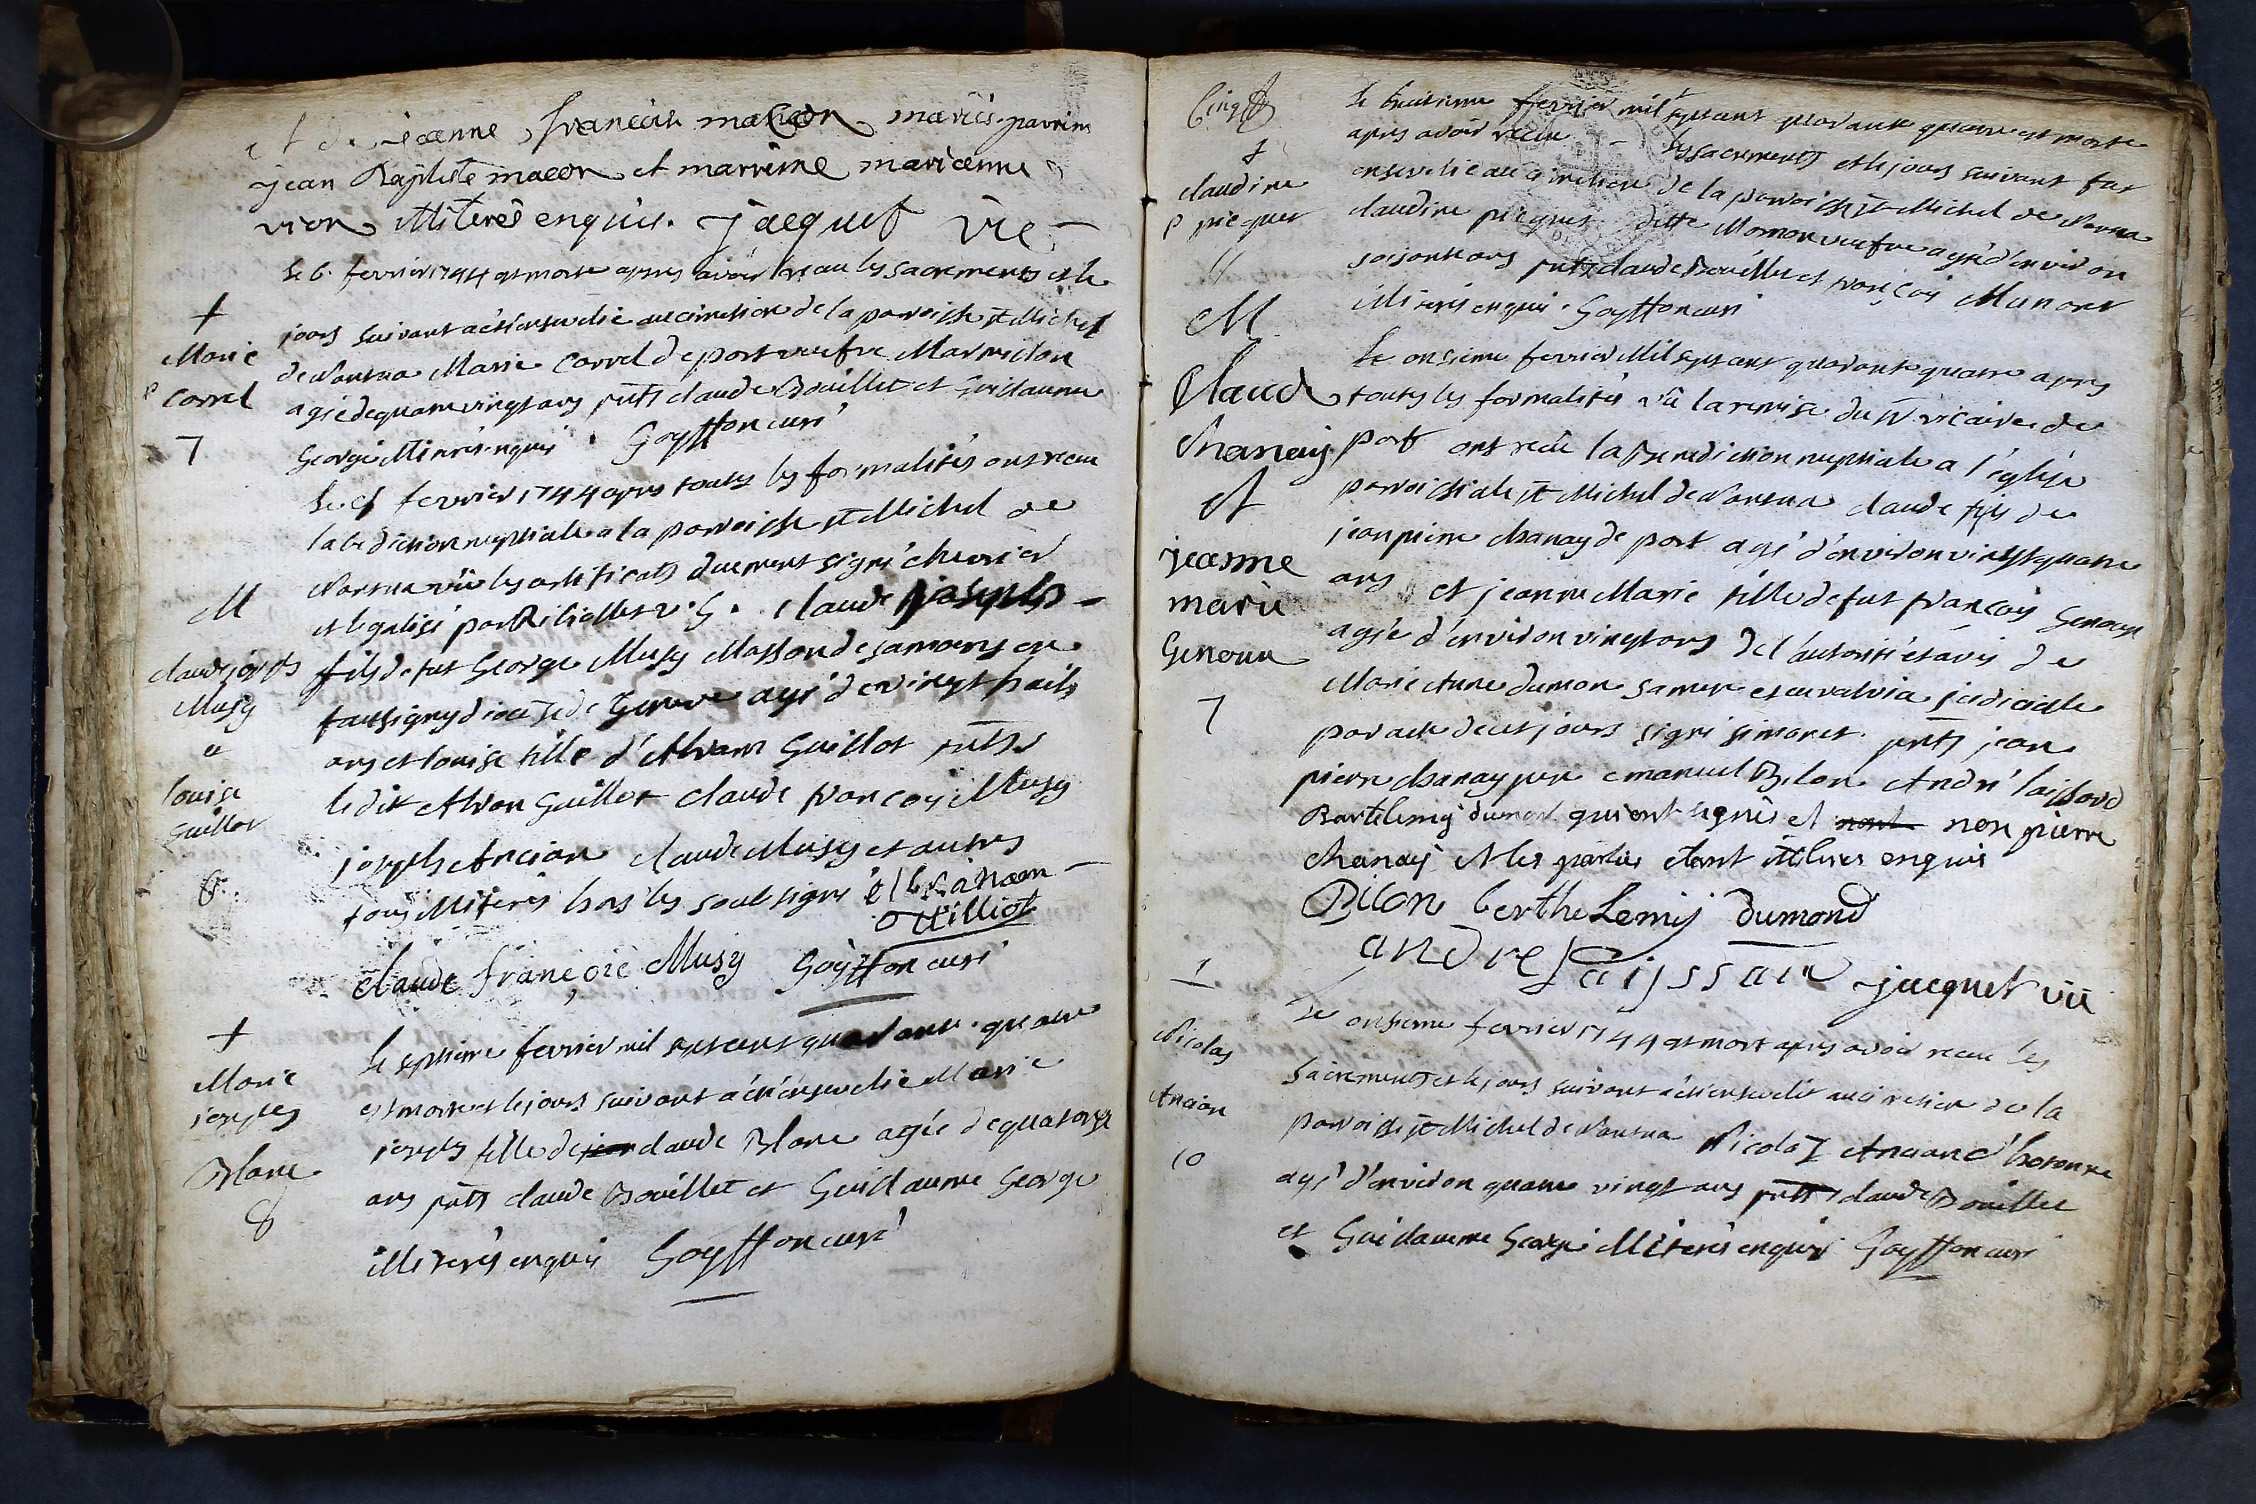 et de jeanne francoise maçon mariés. parrim
jean Baptiste macon et marreine marieanne
vion illiterés enquis. jacquet vic
Le 6. fevrier 1744 est morte apres avoir recu les sacrements et le
jours suivant a été ensevelie au cimetiere de la paroisse st Michel
de Nantua Marie Carrel de port veufve Marmillon
agée de quatre vingt ans pnts claude Bouillet et Guillaume
George illiterés enquis. Goyffon curé
+
Marie
Carrel
7
Le fevrier 1744 apres toutes les formalités ont recu
la bediction nuptiale a la paroisse st Michel de
Nantua vû les certificats duement signé chevrier
et legalisé par v. G. claude joseph
fils de fut George Musy Masson de samoens en
faussigny diocese de Geneve agé de vingt huit
ans et louise fille d'Abram Guillot pnts
le dit Abram Guillot claude francois Musy
joseph Ancian claude Musy et autres
tous illiterés hors les soussignés Abraham
Guilliot
claude françois Musy Goyffon curé
M
claude joseph
Musy
et
louise
Guillot
6.
le septieme fevrier mil sept cent quarante quatre
est morte et le jours suivant a été ensevelie Marie
joseph fille de jean claude Blanc agée de quatorze
ans pnts claude Bouillet et Guillaume George
illiterés enquis Goyffon curé
+
Marie
joseph
Blanc
8
Cinq
+
claudine
p picquet
le huitieme fevrier mil sept cent quarante quatre est morte
apres avoir recu les sacrements et le jours suivant fut
ensevelie au cimetiere de la paroisse st Michel de Nantua
claudine picquet ditte Momon veufve agée d'environ
soisante ans pnts claude Bouillet et françois Munoret
illiterés enquis. Goyffon curé
M
Claud
chanay
et
jeanne
marie
Genoux
7
Le onsieme fevrier Mil sept cent quarante quatre apres
toutes les formalités vû la remise du sr vicaire de
port ont recû la Benediction nuptiale a l'église
paroissiale st Michel de Nantua claude fils de
jean pierre chanay de port agé d'environ vingt quatre
ans et jeanne Marie fille de fut françois Genoux
agée d'environ vingt ans de l'autorité et avis de
Marie Anne dumon sa mere et curatrix judicielle
par acte de cet jours signé simonet. pnts jean
pierre chanay pere emanuel Bilon André laissard
Bartelemy dumont qui ont signés et nont non pierre
chanay et les parties etant illiteres enquis
Bilon berthelemy dumond
andre Laijssar jacquet vic
+
Nicolas
Ancian
10
Le onsieme fevrier 1744 est mort apres avoir recu les
sacrements et le jours suivant a été enseveli au cimetiere de la
paroisse st Michel de Nantua Nicolas Ancian d'hotonne
agé d'environ quatre vingt ans pnts claude Bouillet
et Guillaume George illiterés enquis Goyffon curé